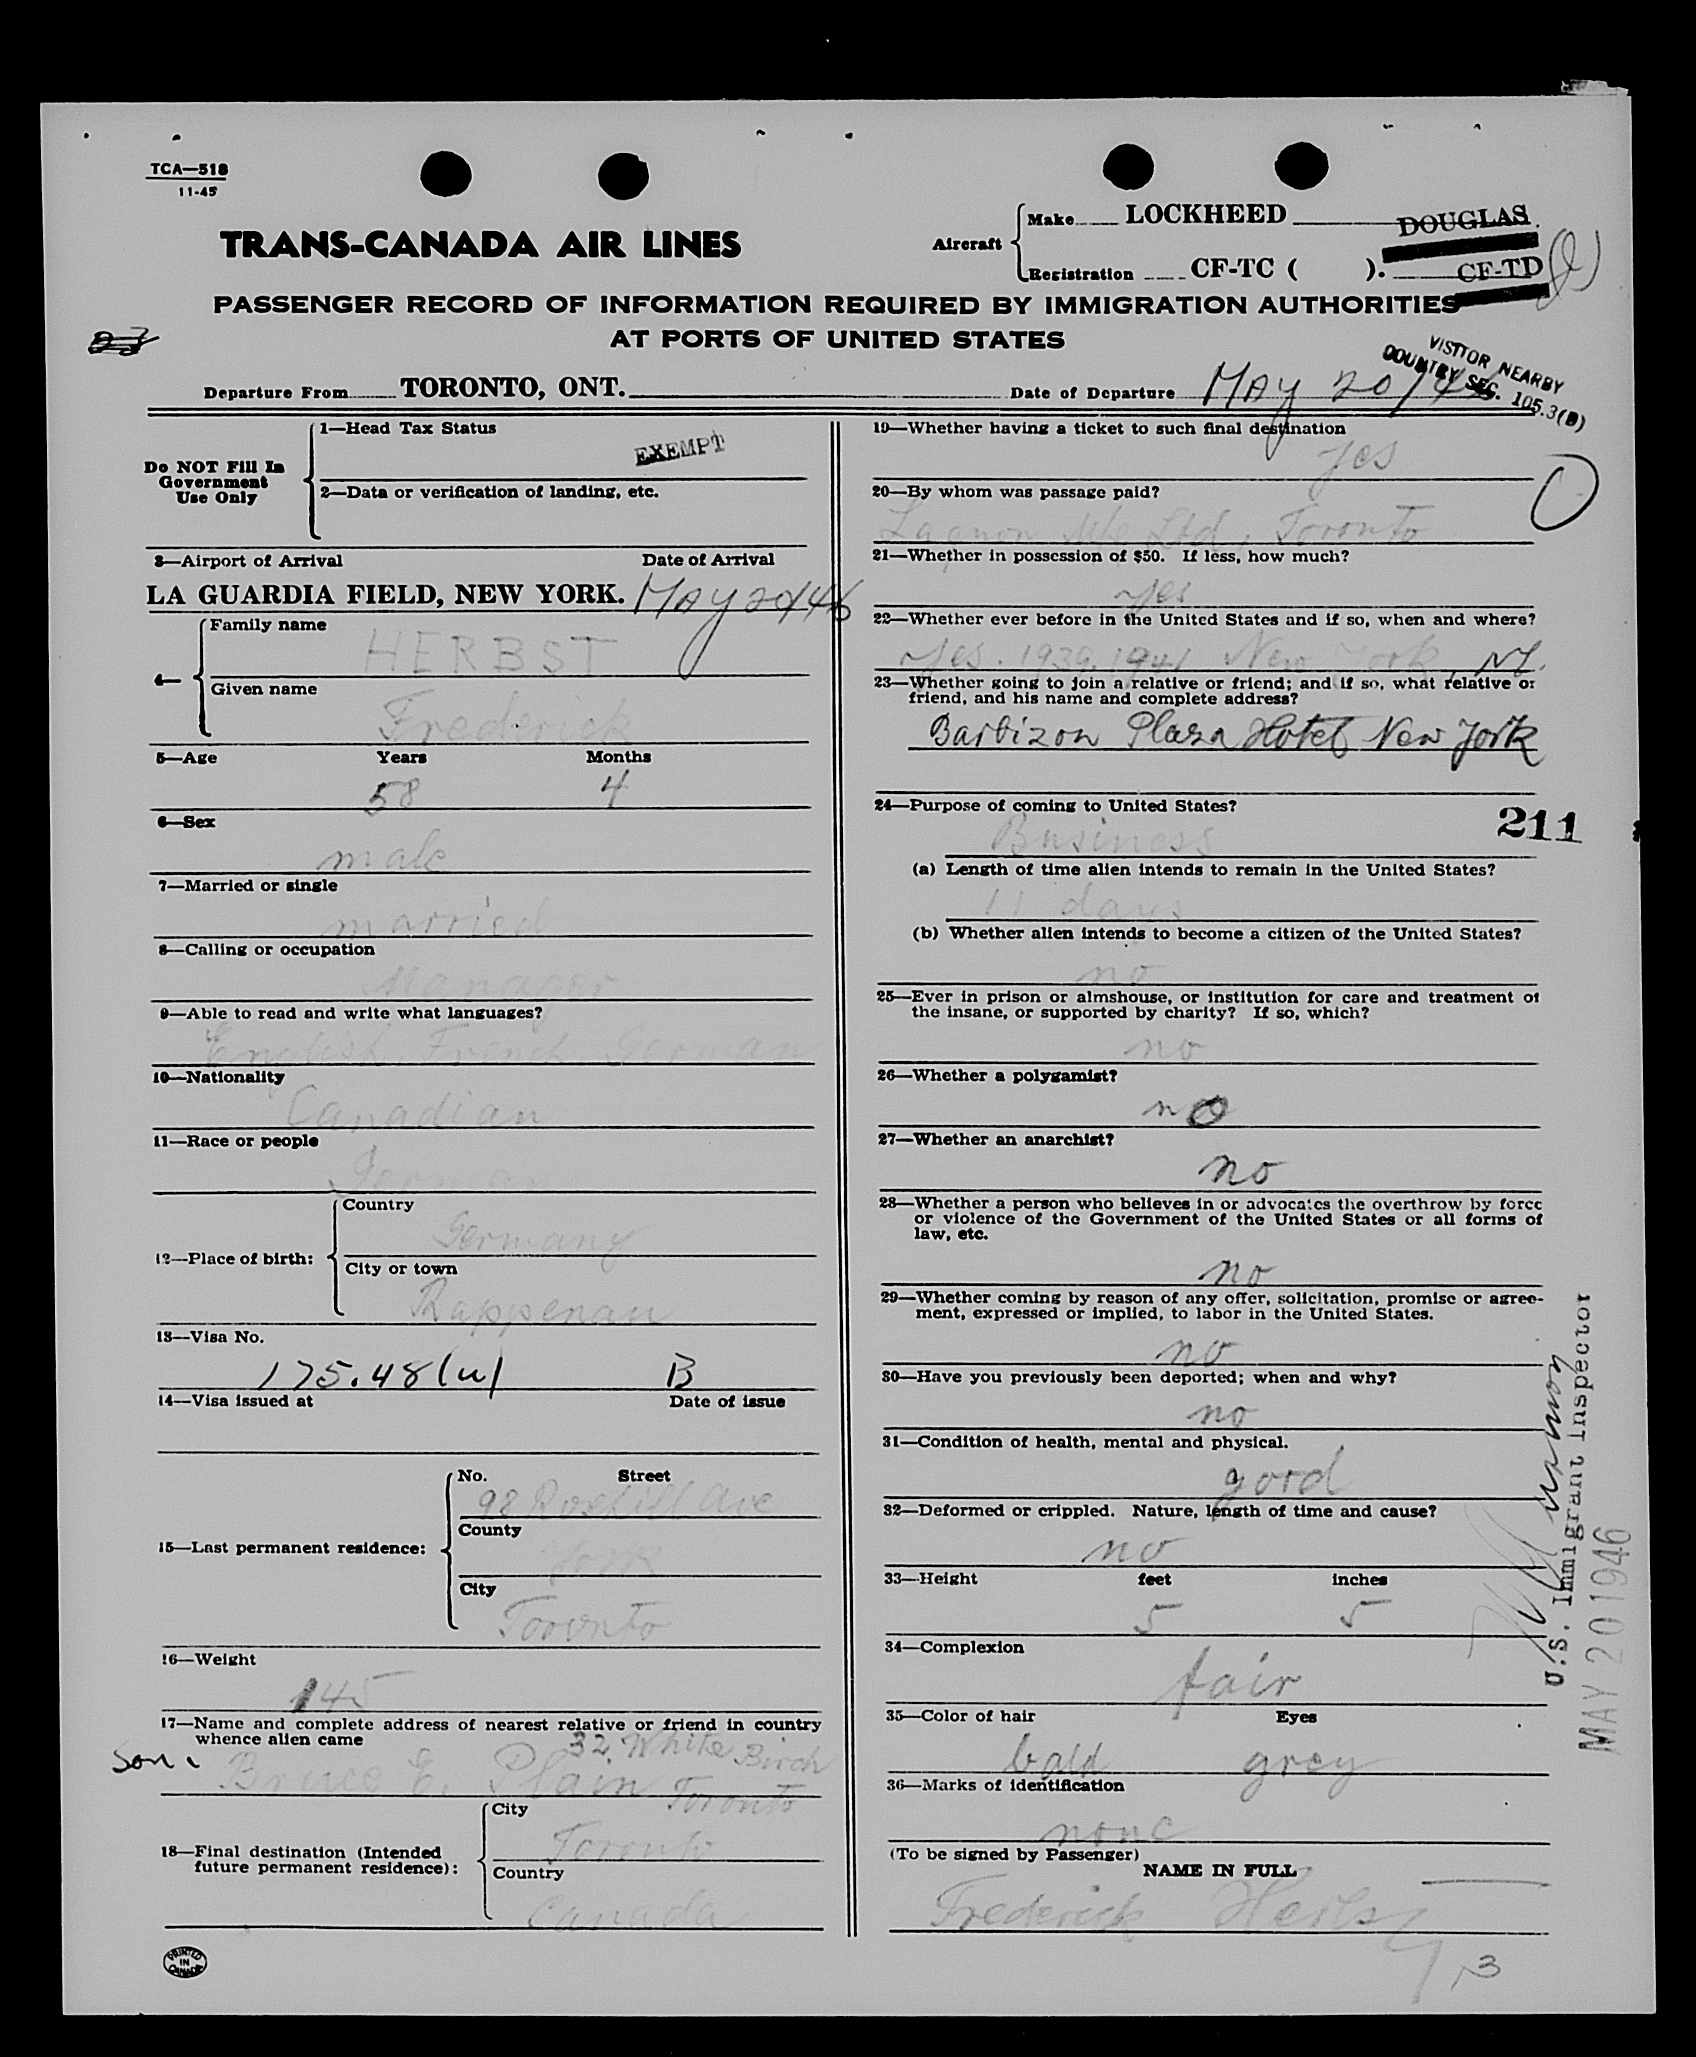 TCA—518
11-45
TRANS-CANADA AIR LINES
Aircraft
Make LOCKHEED DOUGLAS
Registration CF-TC ( ). CF-TD
PASSENGER RECORD OF INFORMATION REQUIRED BY IMMIGRATION AUTHORITIES
AT PORTS OF UNITED STATES
VISITOR NEARBY
COUNTRY SEC. 105.3(B)
Departure From TORONTO, ONT. Date of Departure May 20/46
Do NOT Fill In
Government
Use Only
1—Head Tax Status
EXEMPT
2—Data or verification of landing, etc.
3—Airport of Arrival Date of Arrival
LA GUARDIA FIELD, NEW YORK. May 20/46
4—
Family name
HERBST
Given name
Frederick
5—Age Years Months
58 4
6—Sex
male
7—Married or single
married
8—Calling or occupation
Manager
9—Able to read and write what languages?
English, French, German
10—Nationality
Canadian
11—Race or people
German
12—Place of birth:
Country
Germany
City or town
Rappenau
13—Visa No.
175.48(w) B
14—Visa issued at Date of issue
15—Last permanent residence:
No. Street
98 Ave
County
York
City
Toronto
16—Weight
145
17—Name and complete address of nearest relative or friend in country
whence alien came
32 White Birch
Son. Bruce E. Plain Toronto
18—Final destination (Intended
future permanent residence):
City
Toronto
Country
Canada
PRINTED
IN
CANADA
19—Whether having a ticket to such final destination
yes
20—By whom was passage paid?
Ltd, Toronto
21—Whether in possession of $50. If less, how much?
yes
22—Whether ever before in the United States and if so, when and where?
Yes. 1939, 1941 New York, NY.
23—Whether going to join a relative or friend; and if so, what relative or
friend, and his name and complete address?
Barbizon Plaza Hotel New York
24—Purpose of coming to United States?
Business
211
(a) Length of time alien intends to remain in the United States?
11 days
(b) Whether alien intends to become a citizen of the United States?
no
25—Ever in prison or almshouse, or institution for care and treatment of
the insane, or supported by charity? If so, which?
no
26—Whether a polygamist?
no
27—Whether an anarchist?
no
28—Whether a person who believes in or advocates the overthrow by force
or violence of the Government of the United States or all forms of
law, etc.
no
29—Whether coming by reason of any offer, solicitation, promise or agree-
ment, expressed or implied, to labor in the United States.
no
30—Have you previously been deported; when and why?
no
31—Condition of health, mental and physical.
good
32—Deformed or crippled. Nature, length of time and cause?
no
33—Height feet inches
5 5
34—Complexion
fair
35—Color of hair Eyes
bald grey
36—Marks of identification
none
(To be signed by Passenger)
NAME IN FULL
Frederick Herbst
3
U.S. Immigrant Inspector
MAY 20 1946